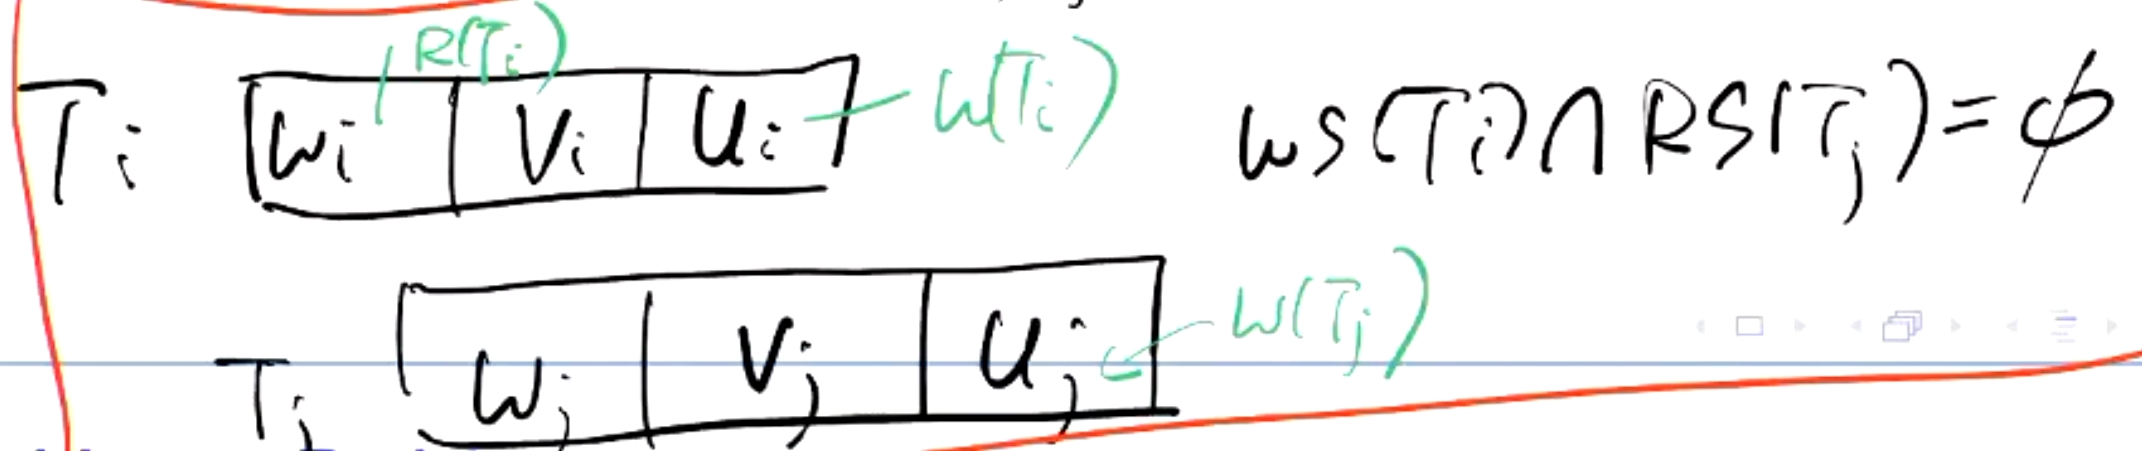 R(Ti)
Ti wi vi ui W(Ti) ws(Ti)∩RS(Tj)=ϕ
Tj wj vj uj W(Tj)